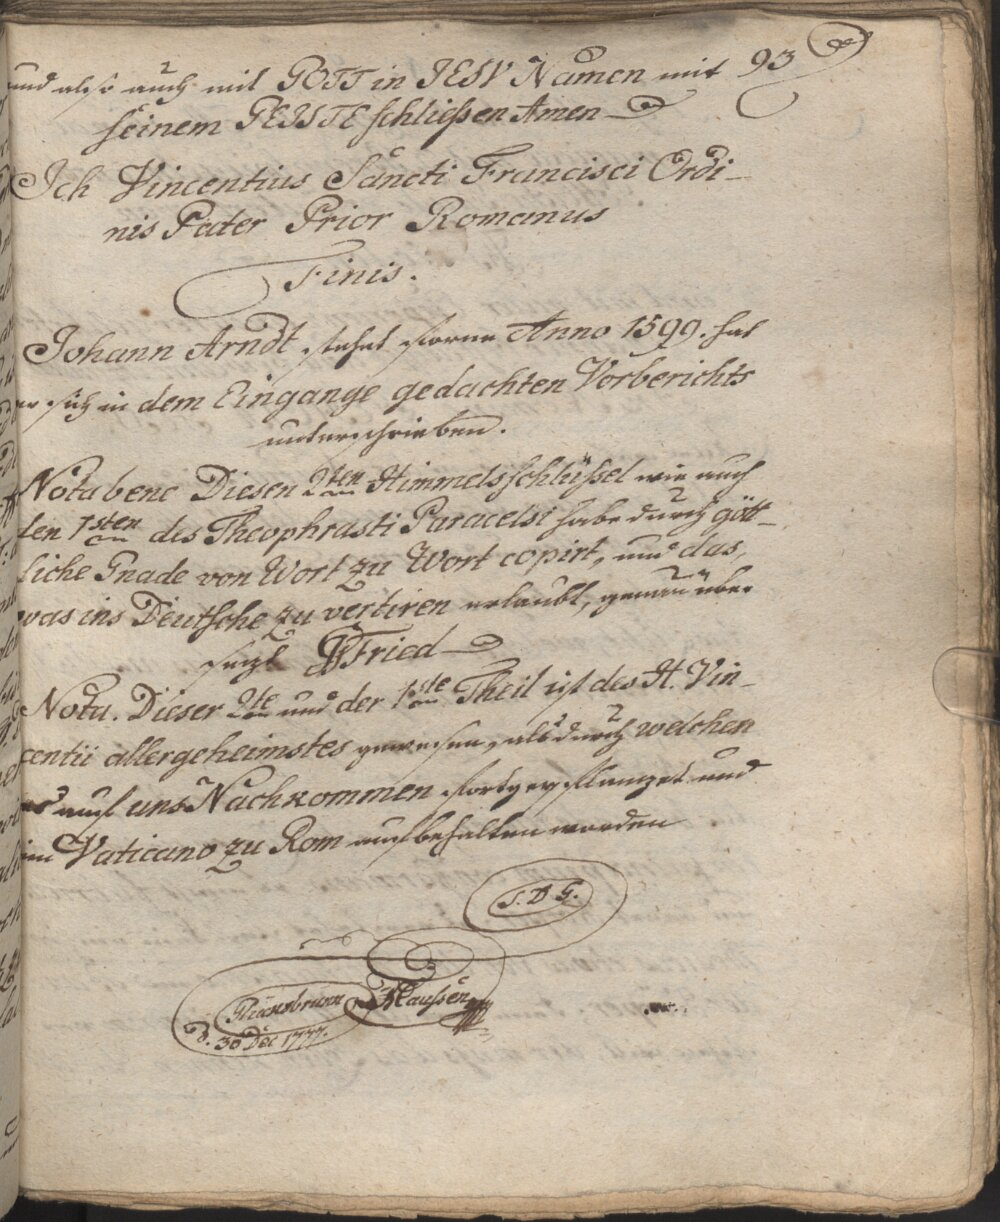 und also auch mit GOTT in JESV Namen mit 93
seinem GEISTE schließen Amen
Ich Vincentius Sancti Francisci Ordi-
nis Pater Prior Romanus
Finis.
Johann Arndt stehet forne Anno 1599. hat
er sich in dem Eingange gedachten Vorberichts
unterschrieben.
Nota bene Diesen 2ten Himmelsschlüßel wie auch
den 1sten des Theophrasti Paracelsi habe durch gött-
liche Gnade von Wort zu Wort copirt, und das,
was ins Deutsche zu vertiren erlaubt, genau über
setzt Fried
Nota. Dieser 2te und der 1ste Theil ist des H. Vin-
centii allergeheimstes gewesen, als durch welchen
es auf uns Nachkommen fortgepflanzet und
im Vaticano zu Rom aufbehalten worden
S. D. G.
Klaußen
d. 30 Dec 1777.